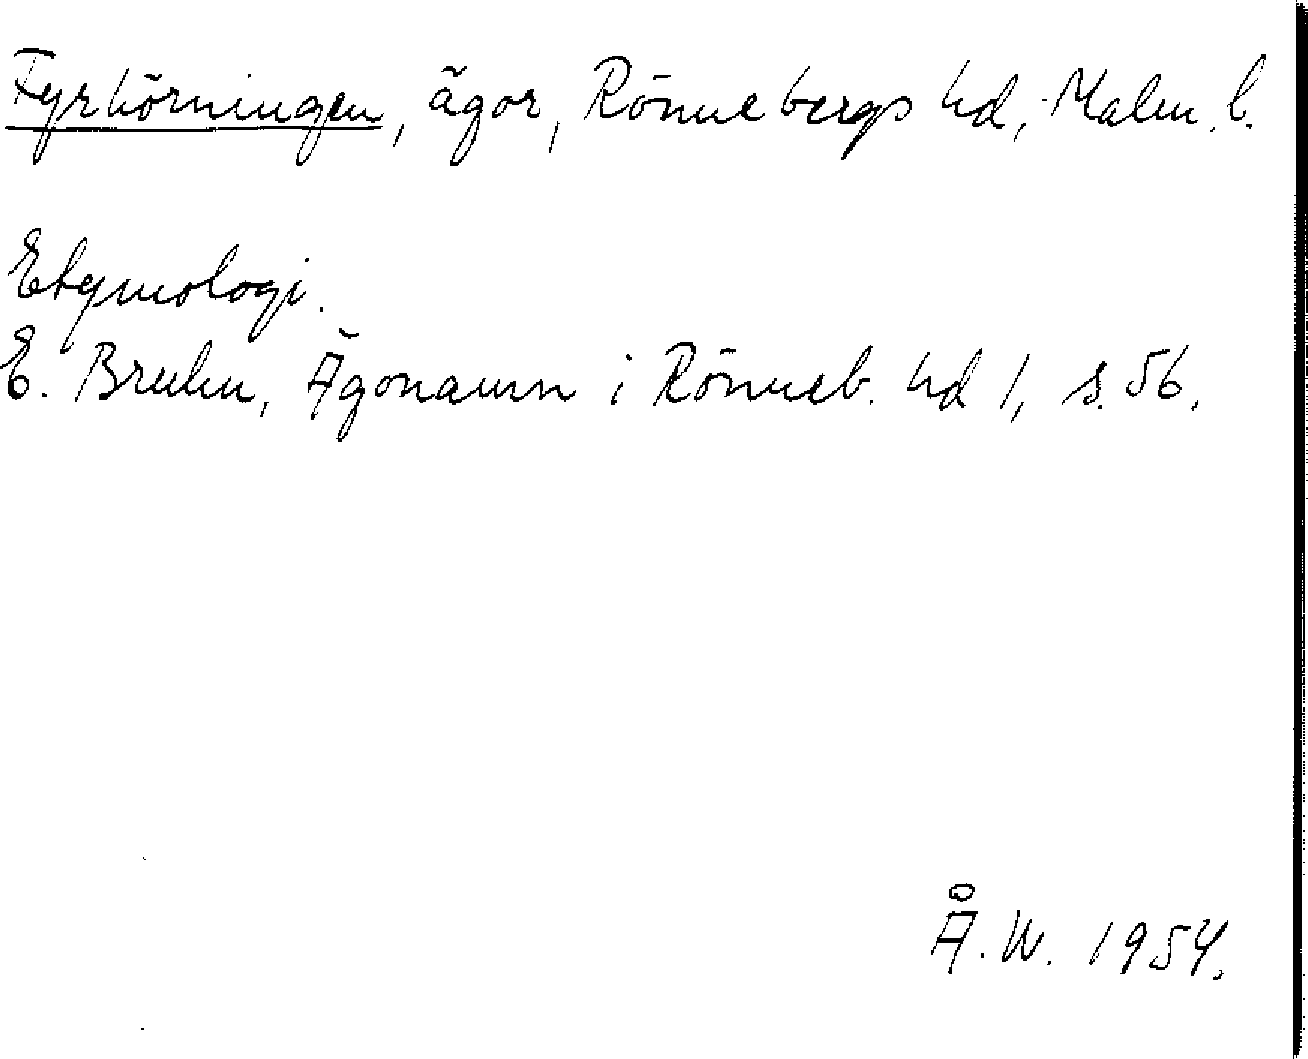 Fyrhörningen, ägor, Rönnebergs hd, Malm. l.
Etymologi.
E. Bruhn, Ägonamn i Rönneb. hd 1, s. 56.
Å. W. 1954.